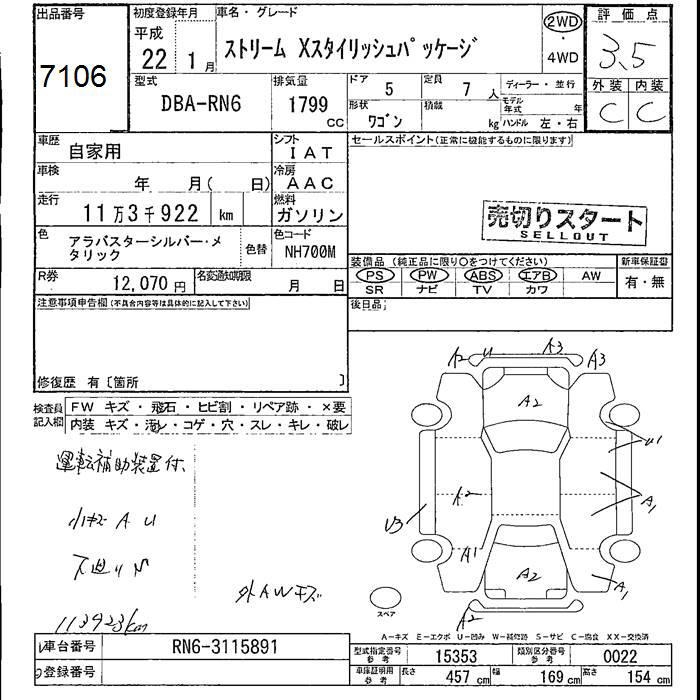 出品番号
7106
初度登録年月
平成
22 1月
車名・グレード
ストリーム Xスタイリッシュパッケージ
2WD
・
4WD
評価点
3.5
外装 内装
C C
型式
DBA-RN6
排気量
1799
CC
ドア 5
定員 7 人
形状 ワゴン
積載 kg
ディーラー・並行
モデル年式 年
ハンドル 左・右
車歴
自家用
シフト
IAT
車検
年 月( 日)
冷房
AAC
走行
11万3千922 km
燃料
ガソリン
色
アラバスターシルバー・メ
タリック
色替
色コード
NH700M
R券
12,070 円
名変通知期限
月 日
セールスポイント(正常に機能するものに限ります)
売切りスタート
SELLOUT
装備品 (純正品に限り○をつけてください)
PS PW ABS エアB AW
SR ナビ TV カワ
新車保証書
有・無
注意事項申告欄(不具合内容等は具体的に記入して下さい)
後日品;
修復歴 有〔箇所 〕
検査員
記入欄
FW キズ・飛石・ヒビ割・リペア跡・×要
内装 キズ・汚レ・コゲ・穴・スレ・キレ・破レ
運転補助装置付、
小キズ A U
下廻りS
外AWキズ
113923km
A2 U A3 A3
A2
U1
A2
A1
U3
A1
A2
A1
A2
スペア
A-キズ E-エクボ U-凹み W-補修跡 S-サビ C-腐食 XX-交換済
車台番号
RN6-3115891
登録番号
型式指定番号
参考
15353
類別区分番号
参考
0022
車庫証明用
参考
長さ 457 cm
幅 169 cm
高さ 154 cm